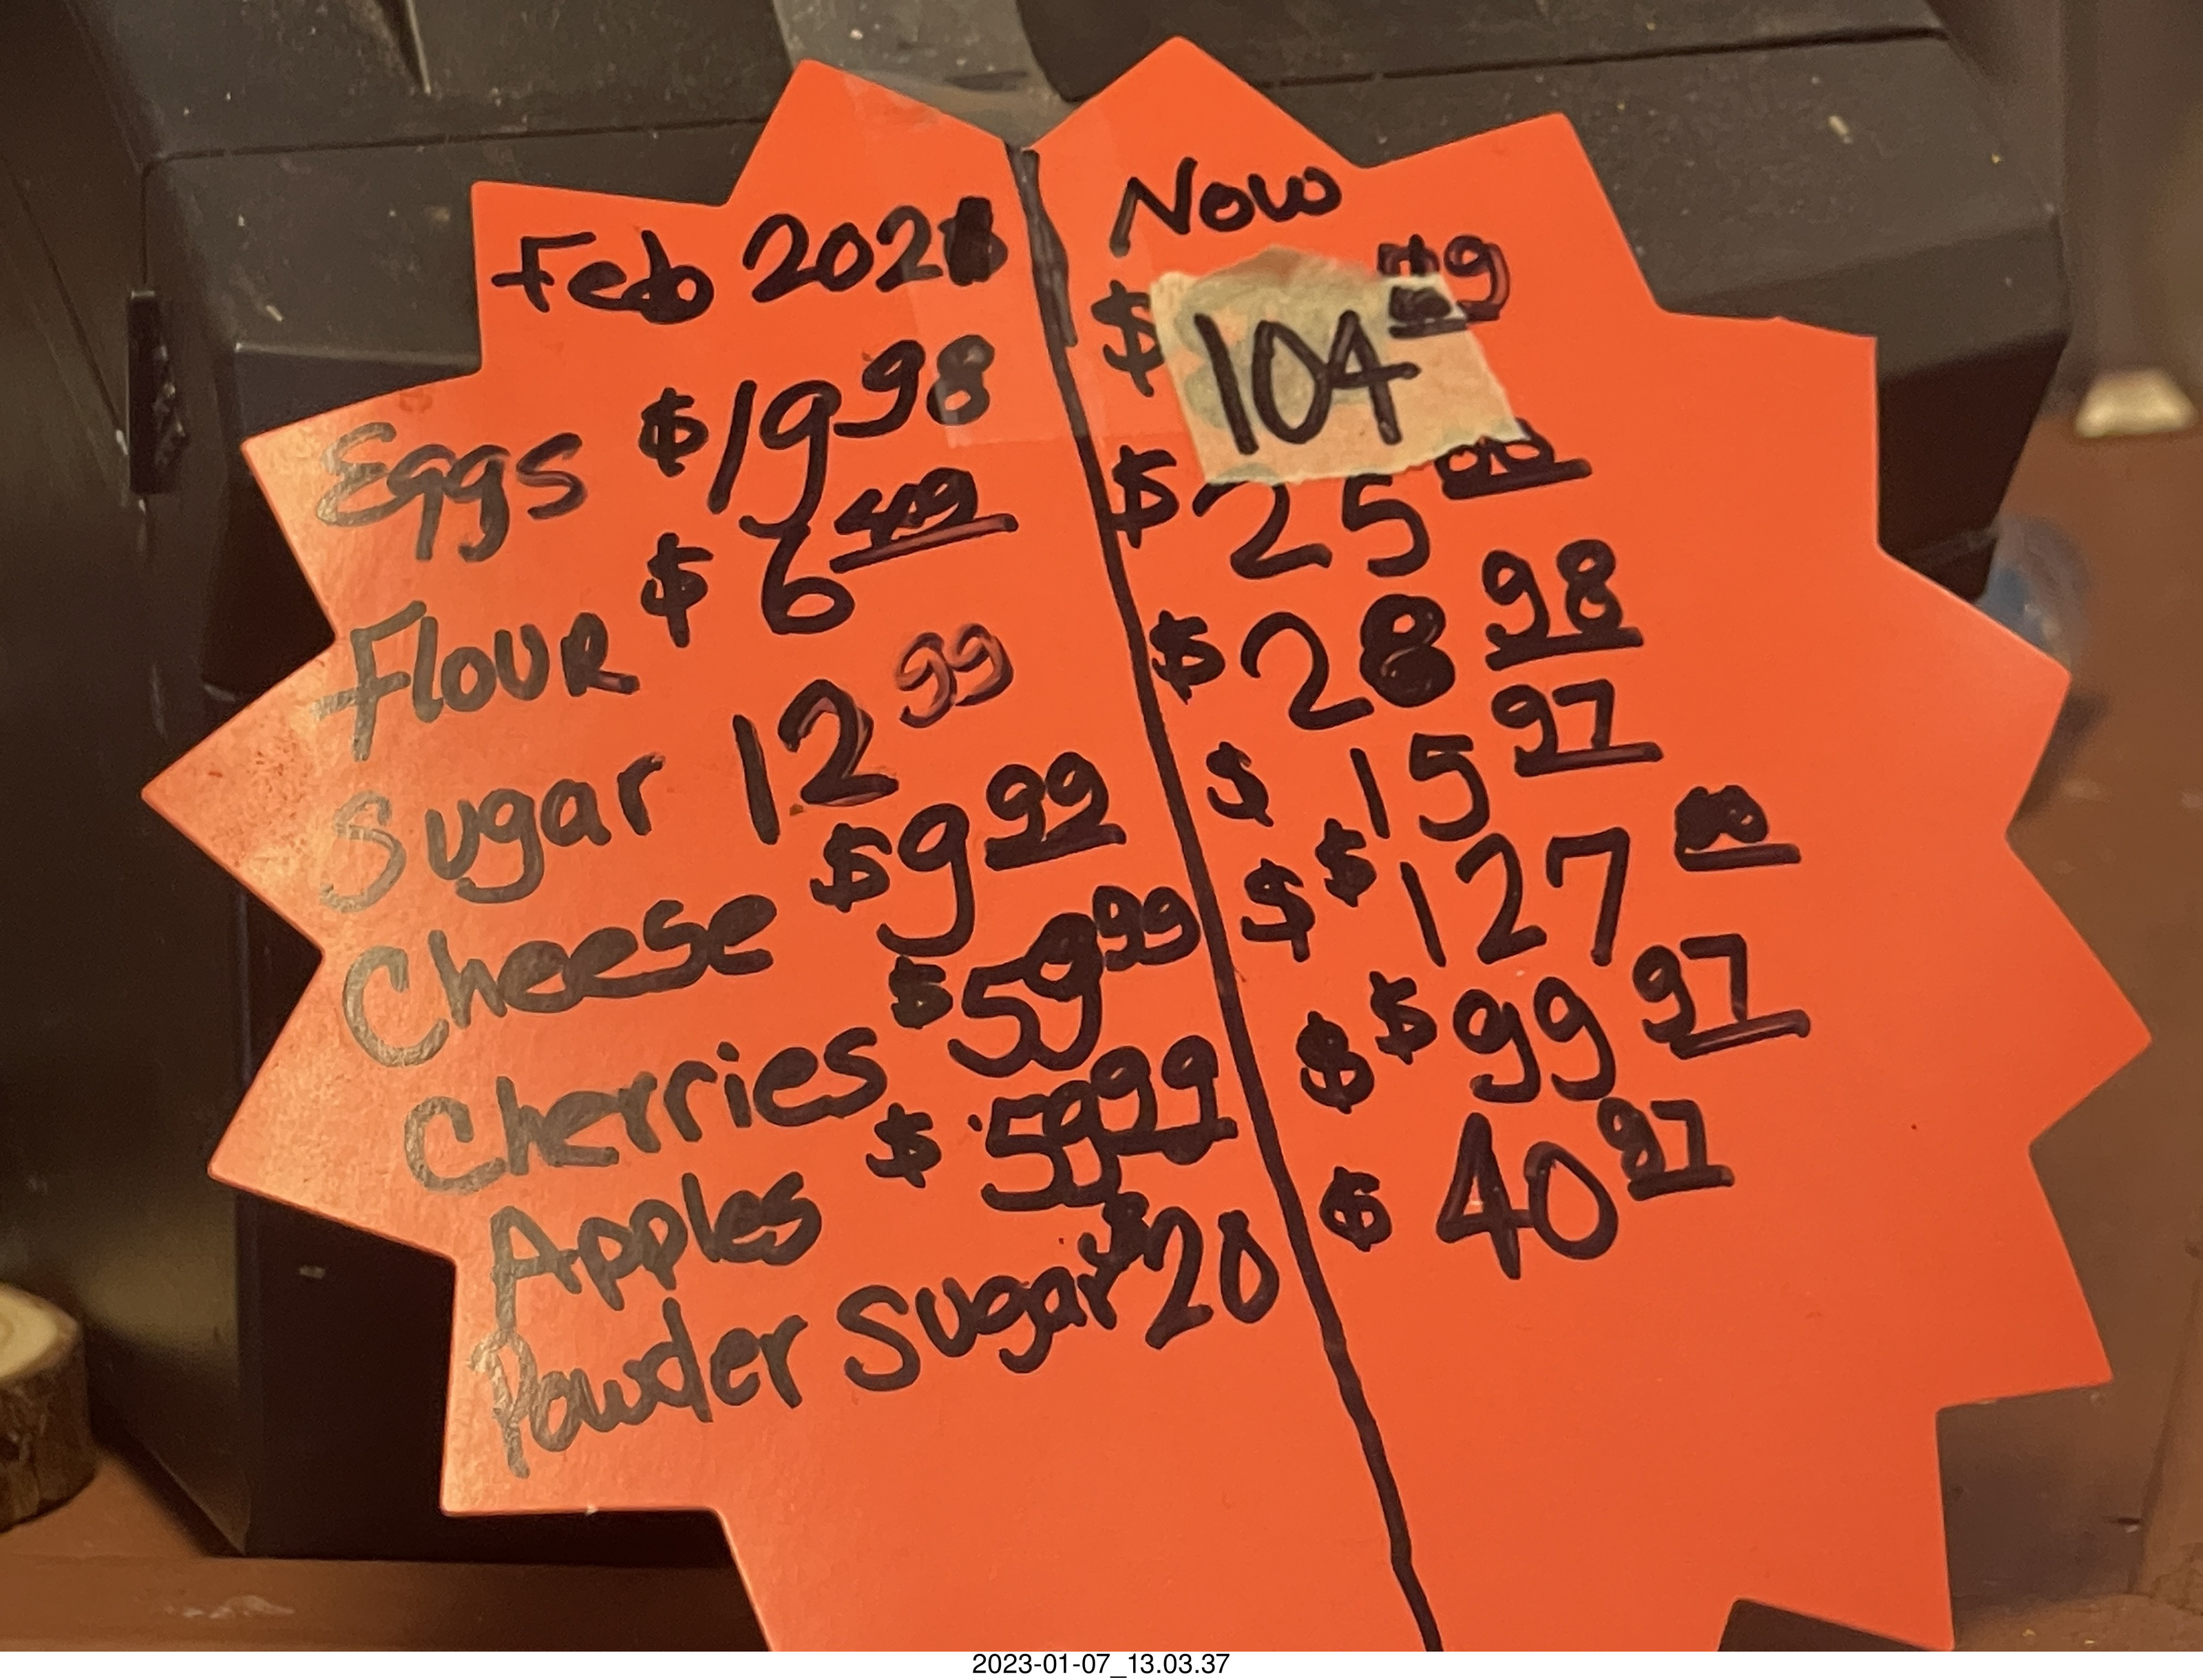 Feb 2021 Now
Eggs $19 98 $ 104
Flour $6 49 $25 00
Sugar 12 99 $28 98
Cheese $9 99 $ 15 97
Cherries $59 99 $ $127 00
Apples $ 59 99 $ $99 97
Powder Sugar $20 $ 40 97
2023-01-07_13.03.37